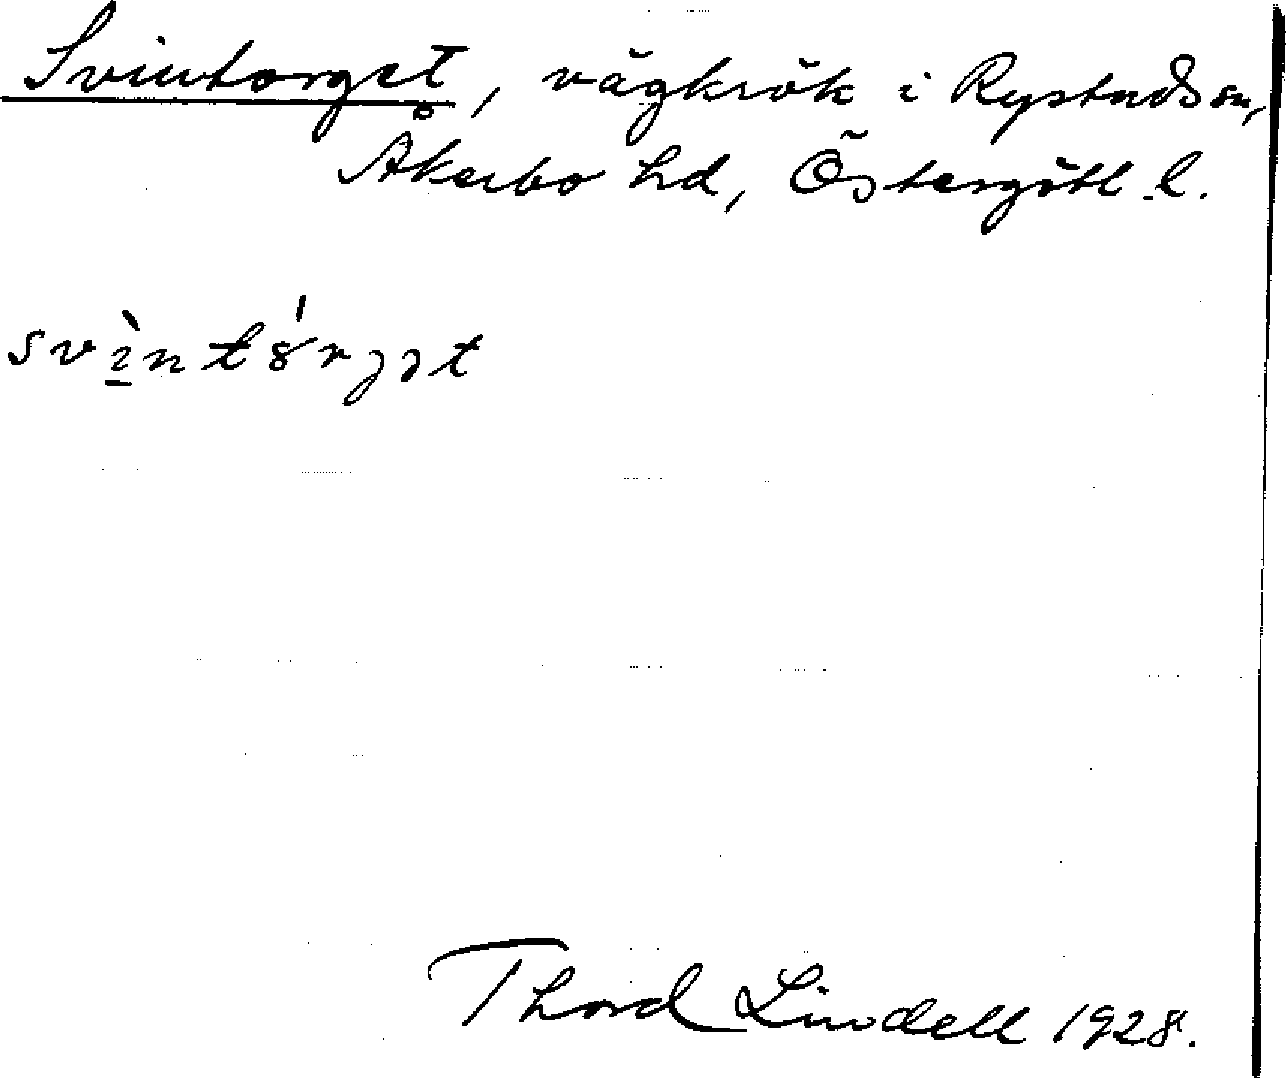 Svintorget, vägkrök i Rystads sn,
Åkerbo hd, Östergötl. l.
svìntórjət
Thord Lindell 1928.